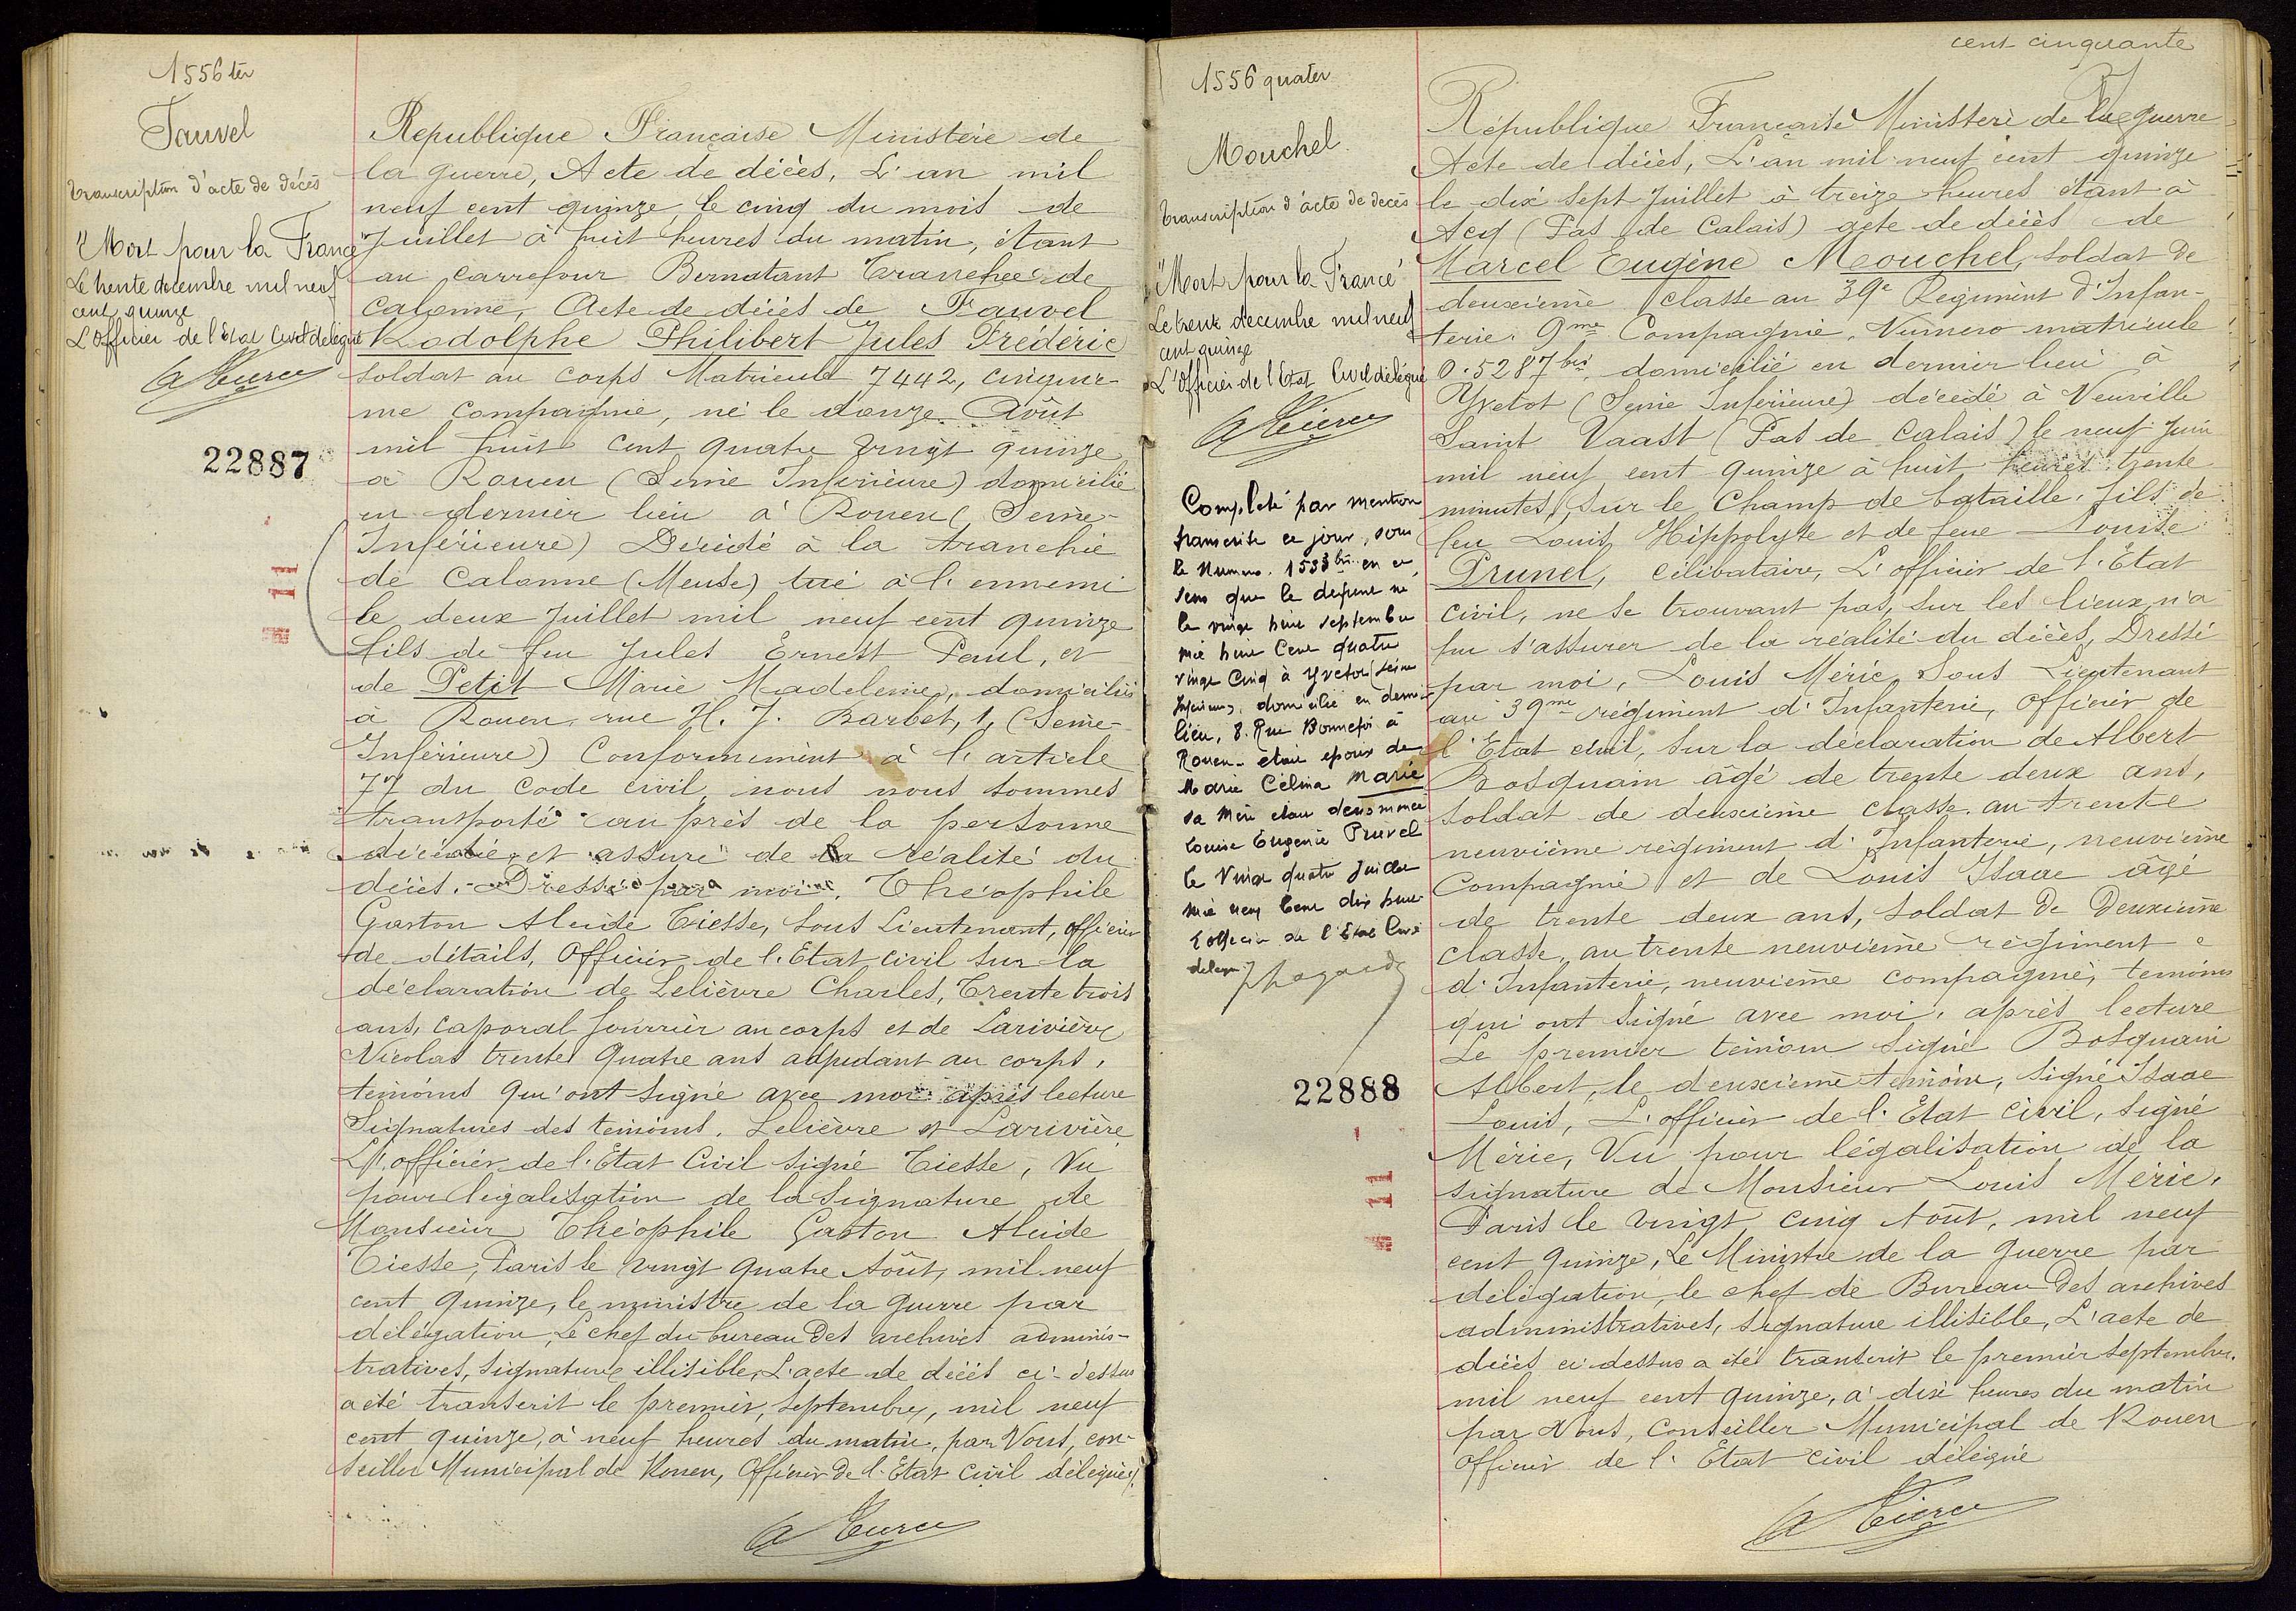 1556 ter
Fauvel
Transcription d'acte de décès
"Mort pour la France"
Le trente décembre mil neuf
cent quinze
L'Officier de l'Etat Civil délégué
22887
11
Republique Française Ministère de
la guerre, Acte de décès, L'an mil
neuf cent quinze, le cinq du mois de
Juillet à huit heures du matin, étant
au carrefour Bernatant Tranchée de
Calonne, Acte de décès de Fauvel
Rodolphe Philibert Jules Frédéric
soldat au corps Matricule 7442, cinquiè-
me compagnie, né le douze Août
mil huit cent quatre vingt quinze
à Rouen (Seine Inférieure) domicilié
en dernier lieu à Rouen (Seine-
Inférieure) Décédé à la tranchée
de Calonne (Meuse) tué à l'ennemi
le deux Juillet mil neuf cent quinze
fils de feu Jules Ernest Paul, et
de Petit Marie Madeleine, domiciliés
à Rouen, rue H. J. Barbet, 1, (Seine-
Inférieure) Conformément à l'article
77 du Code civil, nous nous sommes
transporté auprès de la personne
décédée et assuré de la réalité du
décès. Dressé par moi, Théophile
Gaston Alcide Tiesse, Sous Lieutenant, officier
de détails, Officier de l'Etat civil sur la
déclaration de Lelièvre Charles, Trente trois
ans, caporal fourrier au corps et de Larivière
Nicolas trente quatre ans adjudant au corps,
témoins qui ont signé avec moi après lecture
Signatures des témoins. Lelièvre et Larivière
L'officier de l'Etat Civil signé Tiesse, Vu
pour légalisation de la signature de
Monsieur Théophile Gaston Alcide
Tiesse, Paris le vingt quatre Août, mil neuf
cent quinze, le ministre de la Guerre par
délégation, Le chef du bureau des archives adminis-
tratives, signature illisible, L'acte de décès ci-dessus
a été transcrit le premier, septembre, mil neuf
cent quinze, à neuf heures du matin, par Nous, con-
seiller Municipal de Rouen, Officier de l'Etat Civil délégué.
cent cinquante
1556 quater
Mouchel
Transcription d'acte de décès
"Mort pour la France"
Le trente décembre mil neuf
cent quinze
L'Officier de l'Etat Civil délégué
Complété par mention
transcrite ce jour, sous
le Numero 1533 bis en ce
sens que le défunt né
le vingt huit septembre
mil huit cent quatre
vingt cinq à Yvetot (Seine
Inférieure), domicilié en dernier
lieu, 8. Rue Bonnefoi à
Rouen - était époux de
Marie Célina Marie
sa mère étant dénommée
Louise Eugénie Prunel
le vingt quatre Juillet
mil neuf cent dix huit
L'officier de l'Etat Civil
délégué
22888
11
République Française Ministère de la guerre
Acte de décès, L'an mil neuf cent quinze
le dix sept Juillet à treize heures étant à
Acq (Pas de Calais) acte de décès de
Marcel Eugène Mouchel, soldat de
deuxième classe au 39e Régiment d'Infan-
terie. 9me Compagnie, Numéro matricule
0.5287 bis, domicilié en dernier lieu à
Yvetot (Seine Inférieure) décédé à Neuville
Saint Vaast (Pas de Calais) le neuf Juin
mil neuf cent quinze à huit heures trente
minutes, sur le Champ de bataille, fils de
feu Louis Hippolyte et de feue Louise
Prunel, célibataire, L'officier de l'Etat
civil, ne se trouvant pas sur les lieux n'a
pu s'assurer de la réalité du décès, Dressé
par moi, Louis Méric, Sous Lieutenant
au 39me régiment d'Infanterie, Officier de
l'Etat civil, sur la déclaration de Albert
Bosquain âgé de trente deux ans,
soldat de deuxième classe au trente
neuvième régiment d'Infanterie, neuvième
Compagnie et de Louis Isaac âgé
de trente deux ans, soldat de Deuxième
classe, au trente neuvième régiment
d'Infanterie, neuvième compagnie, témoins
qui ont signé avec moi, après lecture
Le premier témoin signé Bosquain
Albert, le deuxième témoin, signé Isaac
Louis, L'officier de l'Etat civil, signé
Méric, Vu pour légalisation de la
signature de Monsieur Louis Méric,
Paris le vingt cinq Août, mil neuf
cent quinze, Le Ministre de la guerre par
délégation, le chef de Bureau des archives
administratives, signature illisible, L'acte de
décès ci-dessus a été transcrit le premier septembre,
mil neuf cent quinze, à dix heures du matin
par Nous, Conseiller Municipal de Rouen
Officier de l'Etat civil délégué